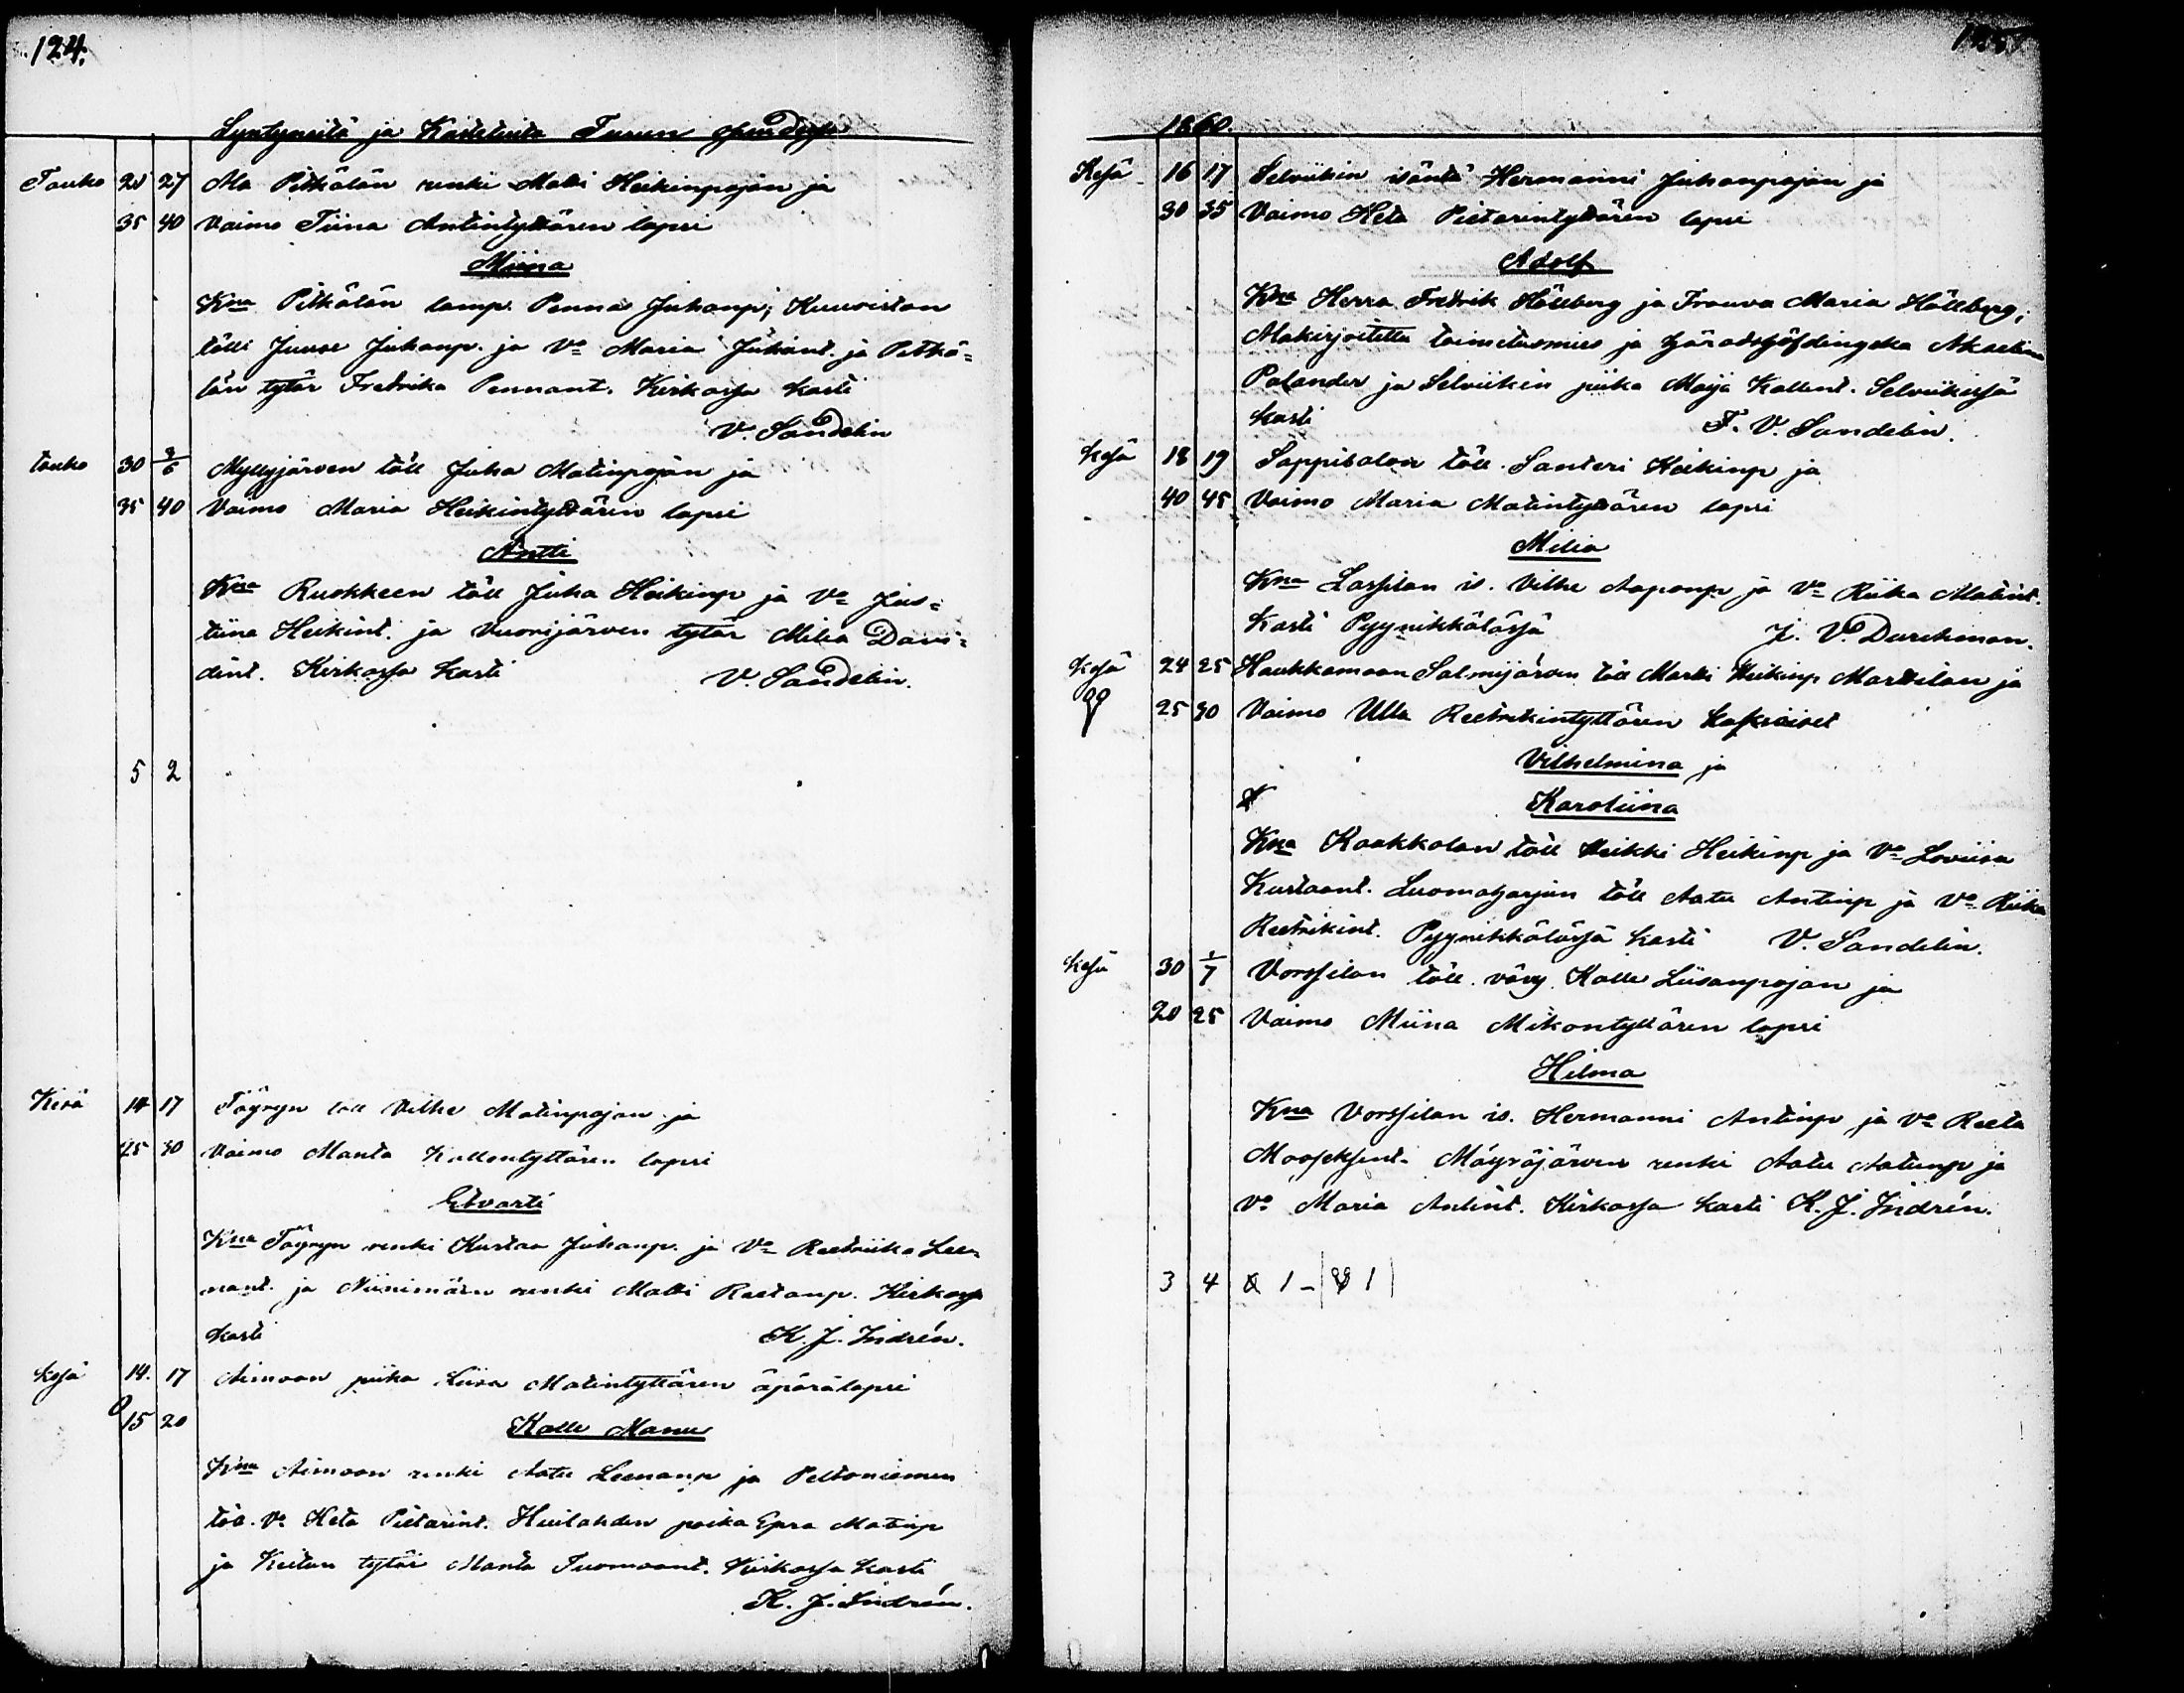 124.
Syntyneitä ja Kastetuita Turun
Touko 20 27 Ala Pitkälän renki Matti Heikinpojan ja
35 40 Vaimo Tiina Antintyttären lapsi
Miina
Kna Pitkälän lamp. Penna Juhanp; Kuuviston
tölli Juuse Juhanp. ja Va Maria Juhant. ja Pitkä=
län tytär Fredrika Pennant. Kirkossa kasti
V. Sandelin
touko 30 3/6 Myllyjärven töll Juha Matinpojan ja
35 40 Vaimo Maria Heikintyttären lapsi
Antti
Kna Ruokkeen töll Juha Heikinp ja Va Jus=
tiina Heikint. ja Vuorijärven tytär Milia Davi=
dint. Kirkossa kasti V. Sandelin.
5 2
Kesä 14 17 Töyryn töll Vilhe Matinpojan ja
25 30 Vaimo Manta Kallentyttären lapsi
Edvarti
Kna Töyryn renki Kustaa Juhanp. ja Va Reetriika Lee=
nant. ja Niinimäen renki Matti Reetanp. Kirkossa
kasti K. J. Indrén.
kesä 14. 17 Aimoon piika Liisa Matintyttären äpärälapsi
15 20
Kalle Manu
Kna Aimoon renki Aatu Leenanp ja Peltoniemen
töll. Va Heta Pietarint. Huilahden poika Epra Matinp
ja Keitun tytär Manta Tuomaant. Kirkossa kasti
K. J. Indrén.
125.
1860.
Kesä 16 17 Selviikin isäntä Hermanni Juhanpojan ja
30 35 Vaimo Heta Pietarintyttären lapsi
Adolf
Kna Herra Fredrik Hällberg ja Frouva Maria Hällberg;
Alakirjoitettu toimitusmies ja häradshöfdingska Akselina
Palander ja Selviikin piika Maija Kallent. Selviikissä
kasti F. V. Sandelin.
kesä 18 19 Sappisalon töll. Santeri Heikinp ja
40 45 Vaimo Maria Matintyttären lapsi
Milia
Kna Lassilan is. Vilhe Aaponp ja Va Riika Matint.
kasti Pyynikkälässä J. V. Durchman.
kesä 24 25 Haukkamaan Salmijärven töll Matti Heikinp Marttilan ja
25 30 Vaimo Ulla Reetrikintyttären kaksoiset
Vilhelmina ja
Karoliina
Kna Kaakkolan töll Heikki Heikinp ja Va Loviisa
Kustaant. Luomaharjun töll Aatu Antinp ja Va Riika
Reetrikint. Pyynikkälässä kasti V. Sandelin.
kesä 30 1/7 Vorssilan töll. vävy Kalle Liisanpojan ja
20 25 Vaimo Miina Mikontyttären lapsi
Hilma
Kna Vorssilan is. Hermanni Antinp ja Va Reeta
Mooseksent. Mäyräjärven renki Aatu Aatunp ja
Va Maria Antint. Kirkossa kasti K. J. Indrén.
3 4 1 - 1